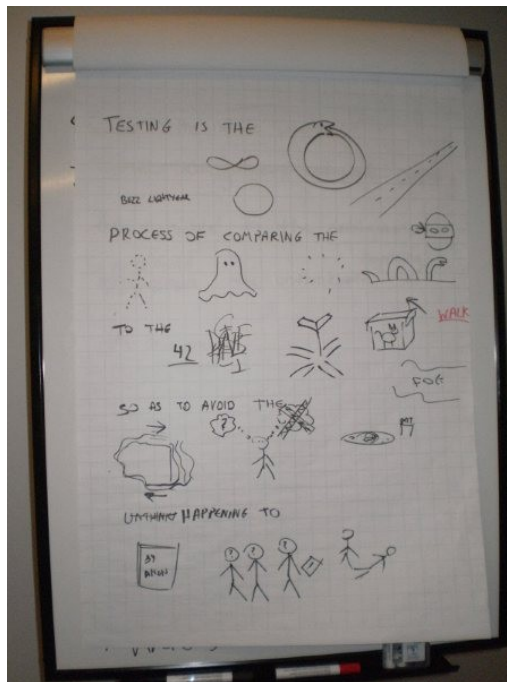 TESTING IS THE
BUZZ LIGHTYEAR
PROCESS OF COMPARING THE
TO THE
42
WALK
FOG
SO AS TO AVOID THE
?
HAPPENING TO
? ? ?